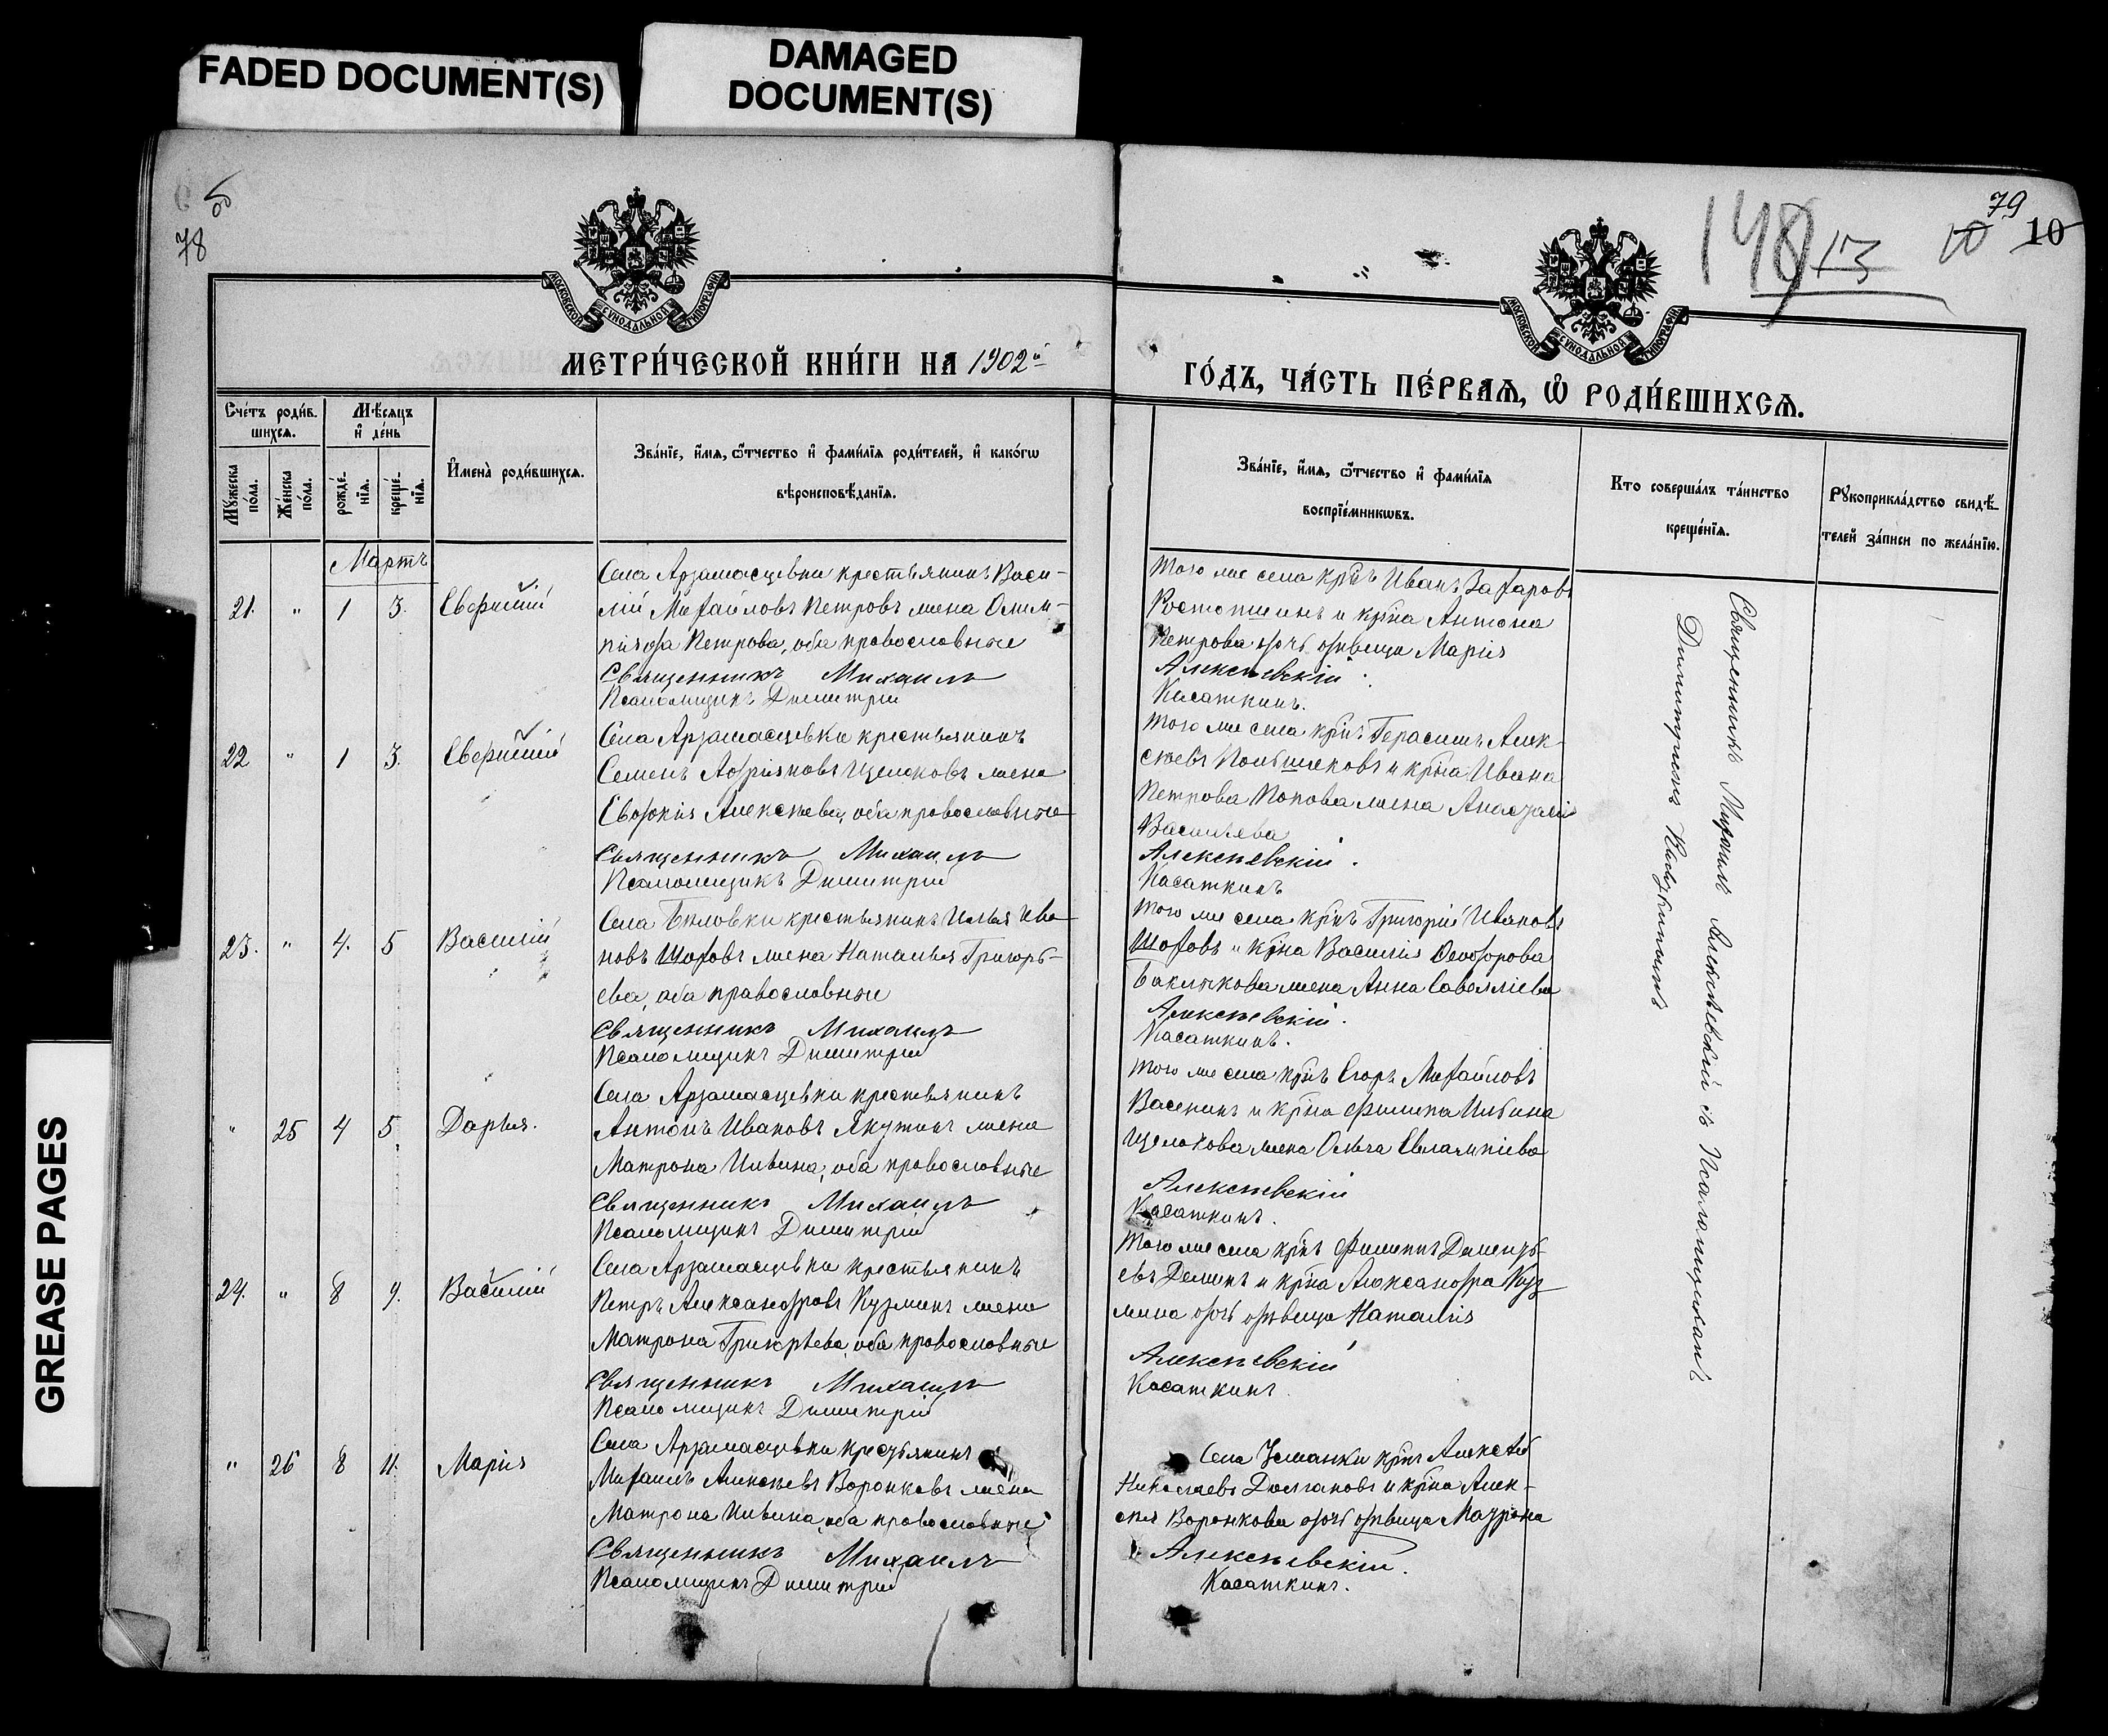 FADED DOCUMENT(S)
DAMAGED
DOCUMENT(S)
GREASE PAGES
78
79
10
10
МОСКОВСКОЙ СѴНОДАЛЬНОЙ ТИПОГРАФІИ
МОСКОВСКОЙ СѴНОДАЛЬНОЙ ТИПОГРАФІИ
МЕТРИ́ЧЕСКОЙ КНИ́ГИ НА 1902й
ГО́ДЪ, ЧА́СТЬ ПЕ́РВАѦ, Ѽ РОДИ́ВШИХСѦ.
Сче́тъ роди́в-
шихсѧ.
Мꙋ́жеска по́ла.
Же́нска по́ла.
Мѣ́сѧцъ
и҆ де́нь
рожде́-
нїѧ.
креще́-
нїѧ.
И҆мена̀ роди́вшихсѧ.
Зва́нїе, и҆́мѧ, ѻ҆́тчество и҆ фами́лїѧ роди́телей, и҆ како́гѡ
вѣроисповѣ́данїѧ.
Зва́нїе, и҆́мѧ, ѻ҆́тчество и҆ фами́лїѧ
воспрїе́мникѡвъ.
Кто соверша́лъ та́инство
креще́нїѧ.
Рꙋкоприкла́дство свидѣ́-
телей за́писи по жела́нїю.
Мартъ
21. " 1 3. Евѳимій
Села Арзамасцевки крестьянинъ Васи-
лій Михайловъ Петровъ жена Олим-
піяда Петрова, оба православные
Священникъ Михаилъ
Псаломщикъ Димитрій
Того же села кр̃нъ Иванъ Захаровъ
Ростопшинъ и кр̃на Антона
Петрова дочь дѣвица Марія
Алексѣевскій
Касаткинъ.
22 " 1 3. Евѳимій
Села Арзамасцевки крестьянинъ
Семенъ Адріяновъ Щелоковъ жена
Евдокія Алексѣева, оба православные
Священникъ Михаилъ
Псаломщикъ Димитрій
Того же села кр̃нъ Герасимъ Алек-
сѣевъ и кр̃на Ивана
Петрова Попова жена Анастасія
Васильева
Алексѣевскій.
Касаткинъ
23. " 4. 5 Василій
Села Бѣловки крестьянинъ Илья Ива-
новъ Шоховъ жена Наталья Григорь-
ева, оба православные
Священникъ Михаилъ
Псаломщикъ Димитрій
Того же села кр̃нъ Григорій Ивановъ
Шоховъ и кр̃на Василія Ѳеодорова
жена Анна Савелліева
Алексѣевскій.
Касаткинъ.
" 25 4 5 Дарья.
Села Арзамасцевки крестьянинъ
Антонъ Ивановъ Якутинъ жена
Матрона Ильина, оба православные
Священникъ Михаилъ
Псаломщикъ Димитрій
Того же села кр̃нъ Егоръ Михайловъ
Васенинъ и кр̃на Филипа Ильина
Щелокова жена Ольга Евлампіева
Алексѣевскій
Касаткинъ.
24. " 8 9. Василій
Села Арзамасцевки крестьянинъ
Петръ Александровъ Кузминъ жена
Матрона Григорьева, оба православные
Священникъ Михаилъ
Псаломщикъ Димитрій
Того же села кр̃нъ Филипъ Дементь-
евъ Деминъ и кр̃на Александра Куз-
мина дочь дѣвица Наталія
Алексѣевскій
Касаткинъ.
" 26 8 11. Марія
Села Арзамасцевки крестьянинъ
Михаилъ Алексѣевъ Воронковъ жена
Матрона Ильина, оба православные
Священникъ Михаилъ
Псаломщикъ Димитрій
Села Усманки кр̃нъ Алексѣй
Николаевъ Долгановъ и кр̃на Алек-
сѣя Воронкова дочь дѣвица Матрона
Алексѣевскій.
Касаткинъ.
Священникъ Михаилъ Алексѣевскій съ Псаломщикомъ
Димитріемъ Касаткинымъ